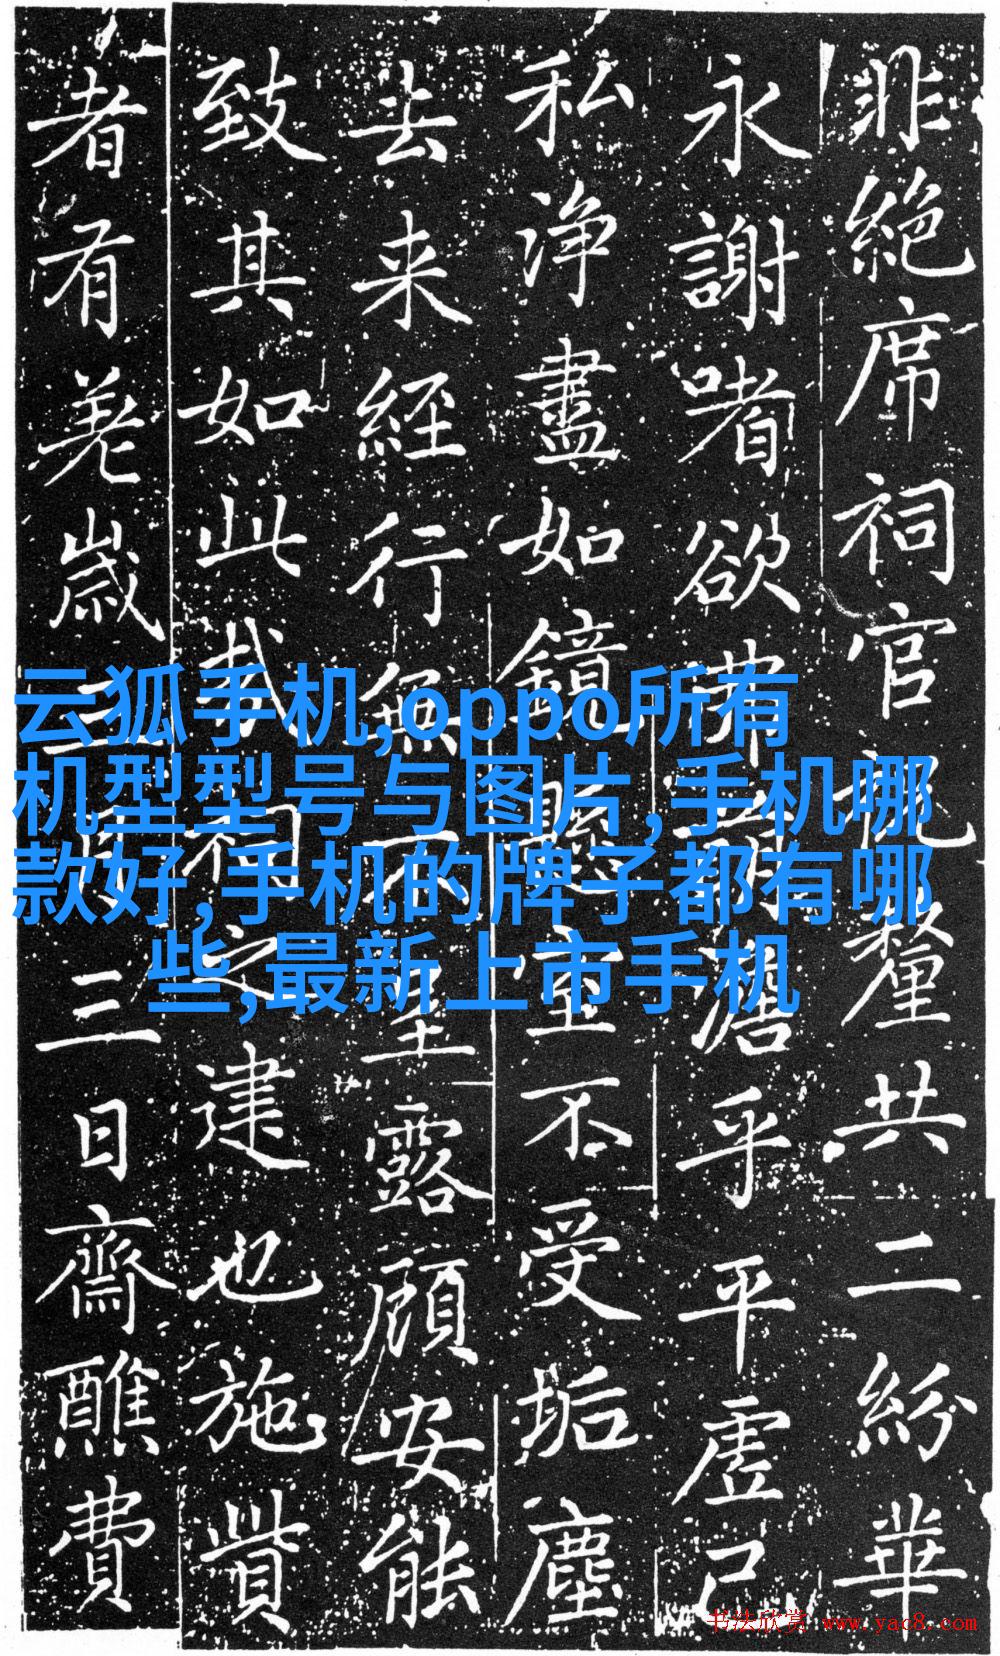 非絶席祠官釐共二紛華
永謝嗜欲澹乎平虚己
私净盡如鏡不受垢塵
去来經行無露顧安能
致其如此哉祠之建也施貲
者有羌歲三日齋醮費
云狐手机,oppo所有
机型型号与图片,手机哪
款好,手机的牌子都有哪
些,最新上市手机
书法欣赏 www.yac8.com